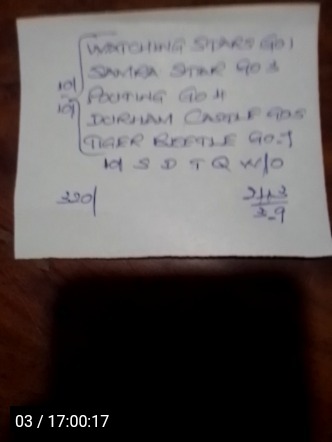 WATCHING STARS GO 1
SAMRA STAR GO 3
POUTING GO 4
DURHAM CASTLE GO 5
TIGER BEETLE GO 7
10/
10/
10/ S D T Q W/O
320/
03 / 17:00:17